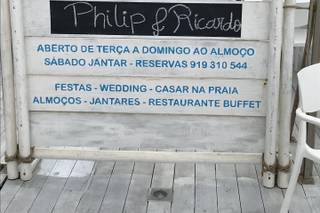 Philip & Ricardo
ABERTO DE TERÇA A DOMINGO AO ALMOÇO
SÁBADO JANTAR - RESERVAS 919 310 544
FESTAS - WEDDING - CASAR NA PRAIA
ALMOÇOS - JANTARES - RESTAURANTE BUFFET